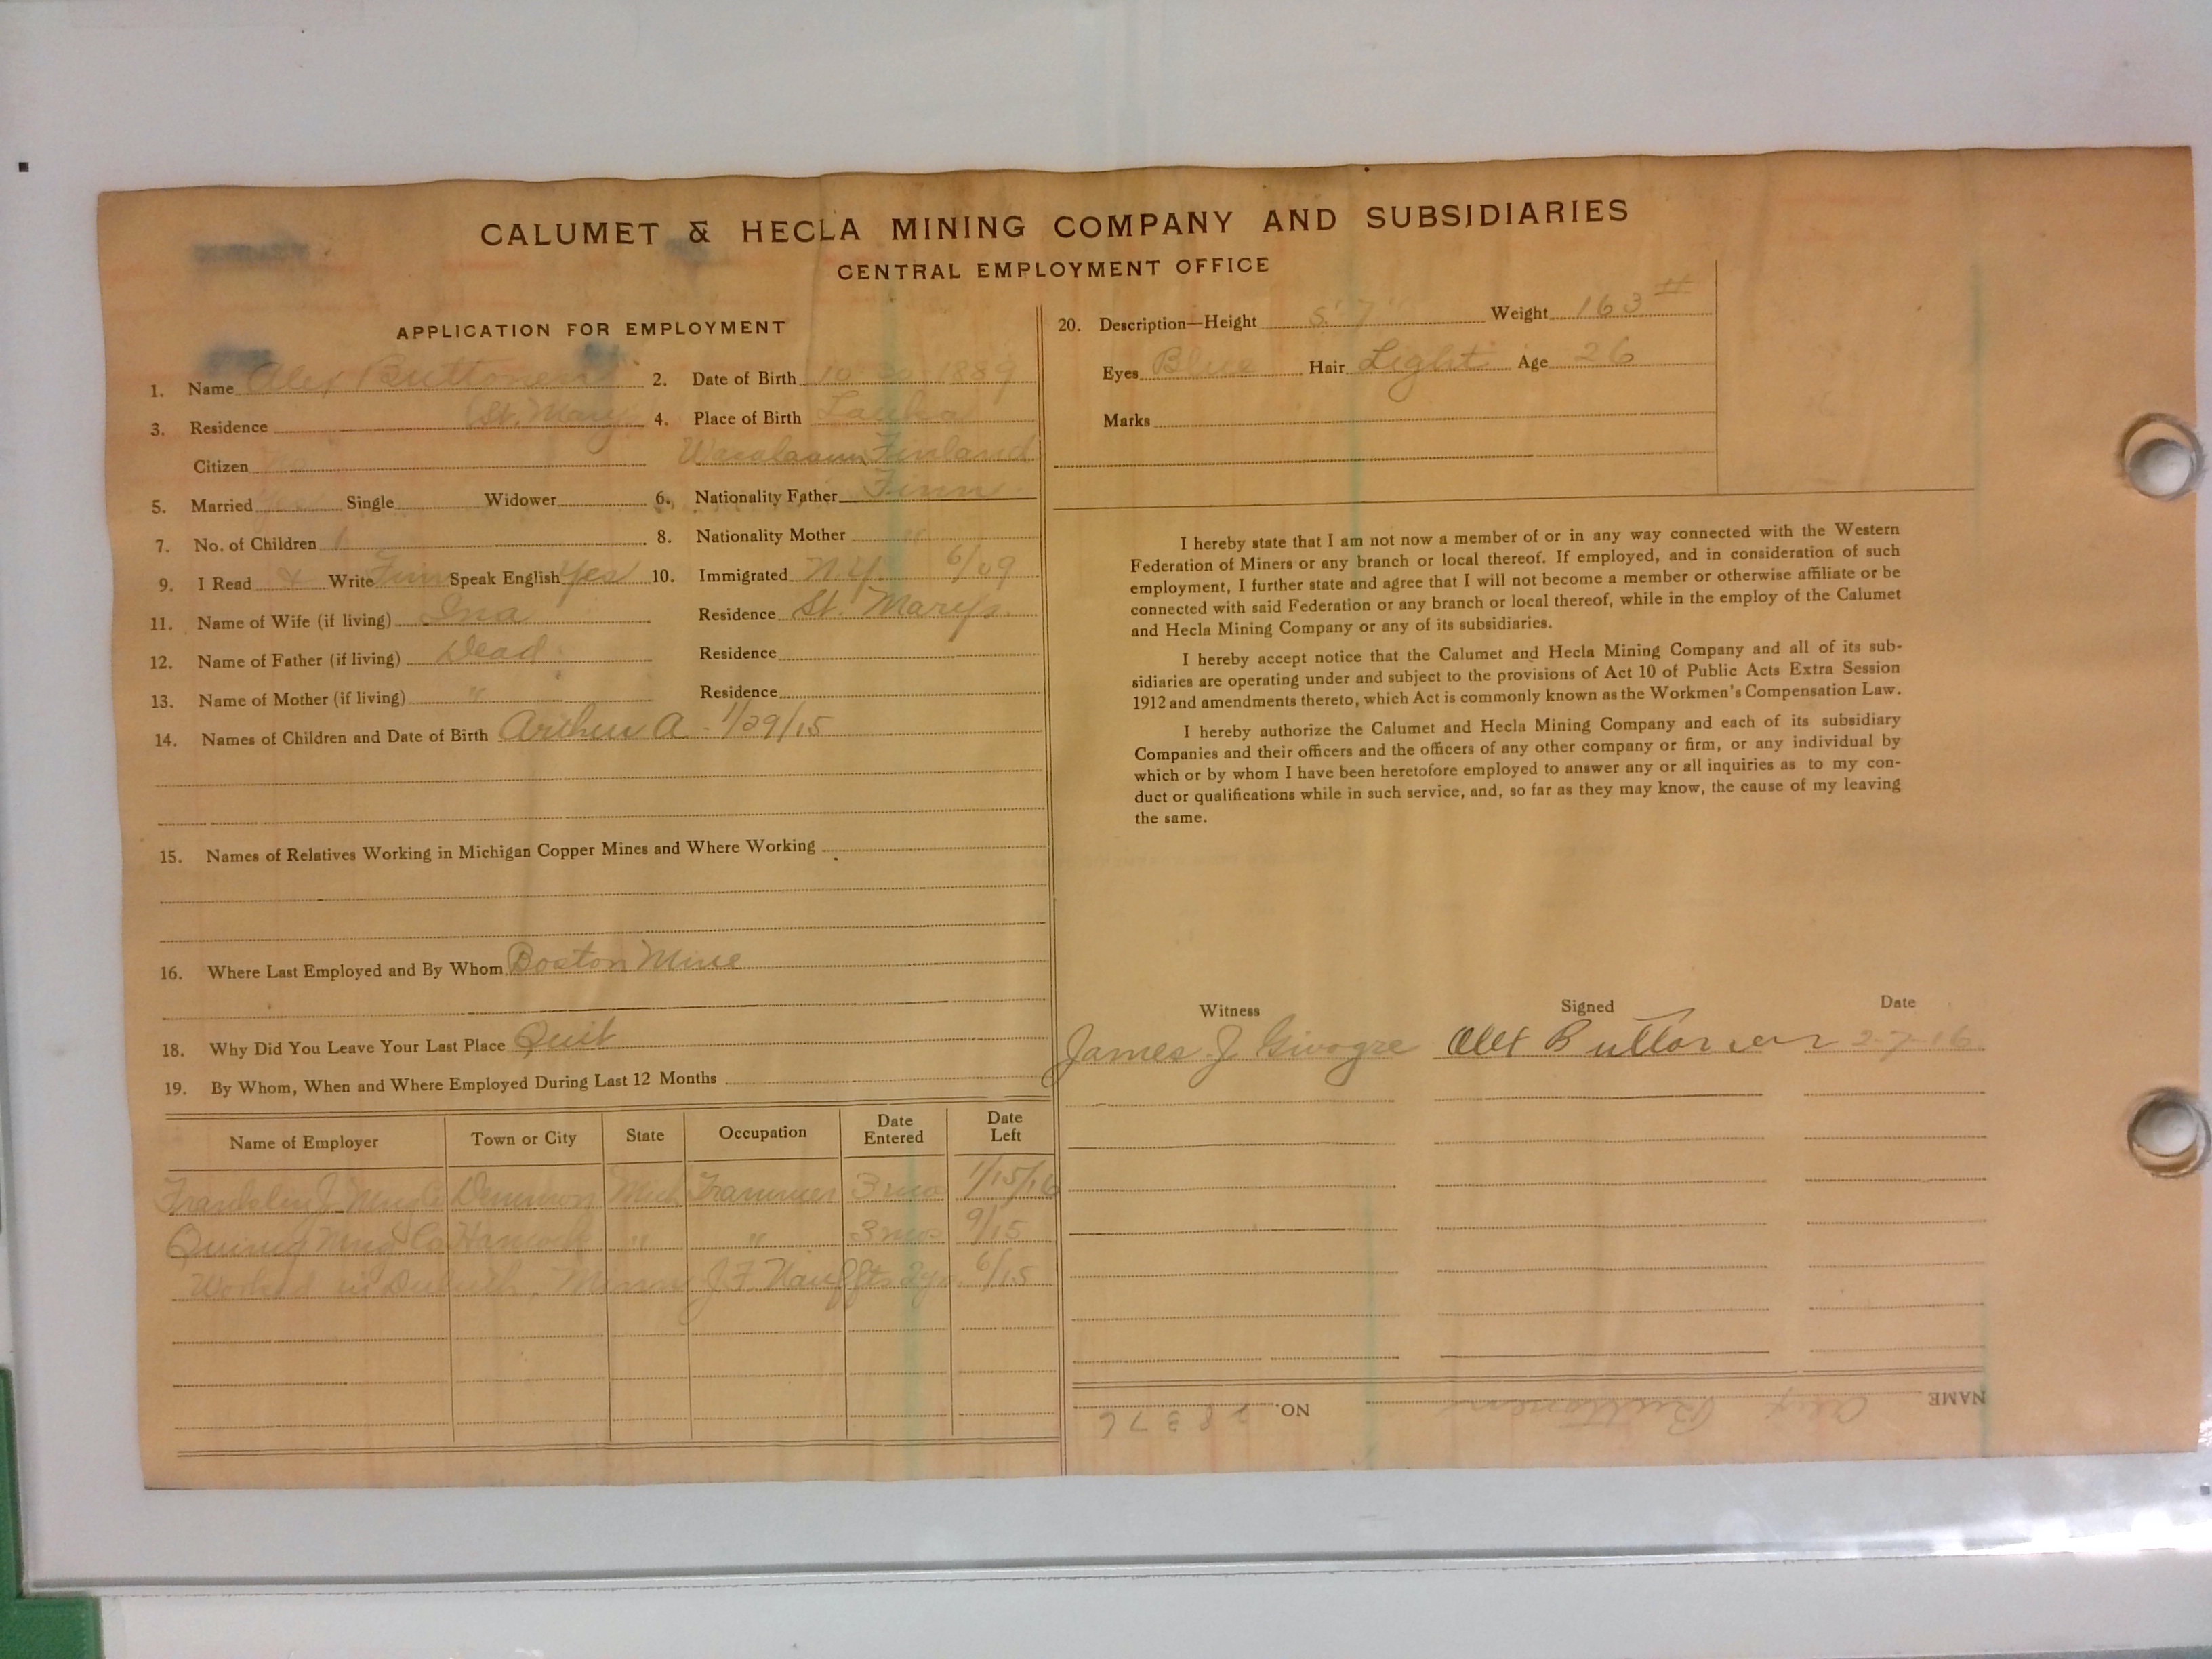 CALUMET & HECLA MINING COMPANY AND SUBSIDIARIES
CENTRAL EMPLOYMENT OFFICE
APPLICATION FOR EMPLOYMENT
1. Name Alex Buttonen 2. Date of Birth 10 1889
3. Residence St. Marys 4. Place of Birth Lauha
Citizen Wasalaani Finland
5. Married Yes Single Widower 6. Nationality Father Finn
7. No. of Children 1 8. Nationality Mother "
9. I Read & Write Finn Speak English Yes 10. Immigrated N.Y. 6/09
11. Name of Wife (if living) Ina Residence St. Marys
12. Name of Father (if living) Dead Residence
13. Name of Mother (if living) " Residence
14. Names of Children and Date of Birth Arthur A - 1/29/15
15. Names of Relatives Working in Michigan Copper Mines and Where Working
16. Where Last Employed and By Whom Boston Mine
18. Why Did You Leave Your Last Place Quit
19. By Whom, When and Where Employed During Last 12 Months
Name of Employer Town or City State Occupation Date Entered Date Left
Mich Trammer 3 mo 1/15/16
Quincy Mng Co Hancock " " 3 mos 9/15
Worked in Duluth, Minn J.F. 2 yr. 6/15
20. Description—Height 5' 7" Weight 163 #
Eyes Blue Hair Light Age 26
Marks
I hereby state that I am not now a member of or in any way connected with the Western
Federation of Miners or any branch or local thereof. If employed, and in consideration of such
employment, I further state and agree that I will not become a member or otherwise affiliate or be
connected with said Federation or any branch or local thereof, while in the employ of the Calumet
and Hecla Mining Company or any of its subsidiaries.
I hereby accept notice that the Calumet and Hecla Mining Company and all of its sub-
sidiaries are operating under and subject to the provisions of Act 10 of Public Acts Extra Session
1912 and amendments thereto, which Act is commonly known as the Workmen's Compensation Law.
I hereby authorize the Calumet and Hecla Mining Company and each of its subsidiary
Companies and their officers and the officers of any other company or firm, or any individual by
which or by whom I have been heretofore employed to answer any or all inquiries as to my con-
duct or qualifications while in such service, and, so far as they may know, the cause of my leaving
the same.
Witness Signed Date
James J Alex Buttonen 2-7-16
NAME Alex Buttonen NO. 28376